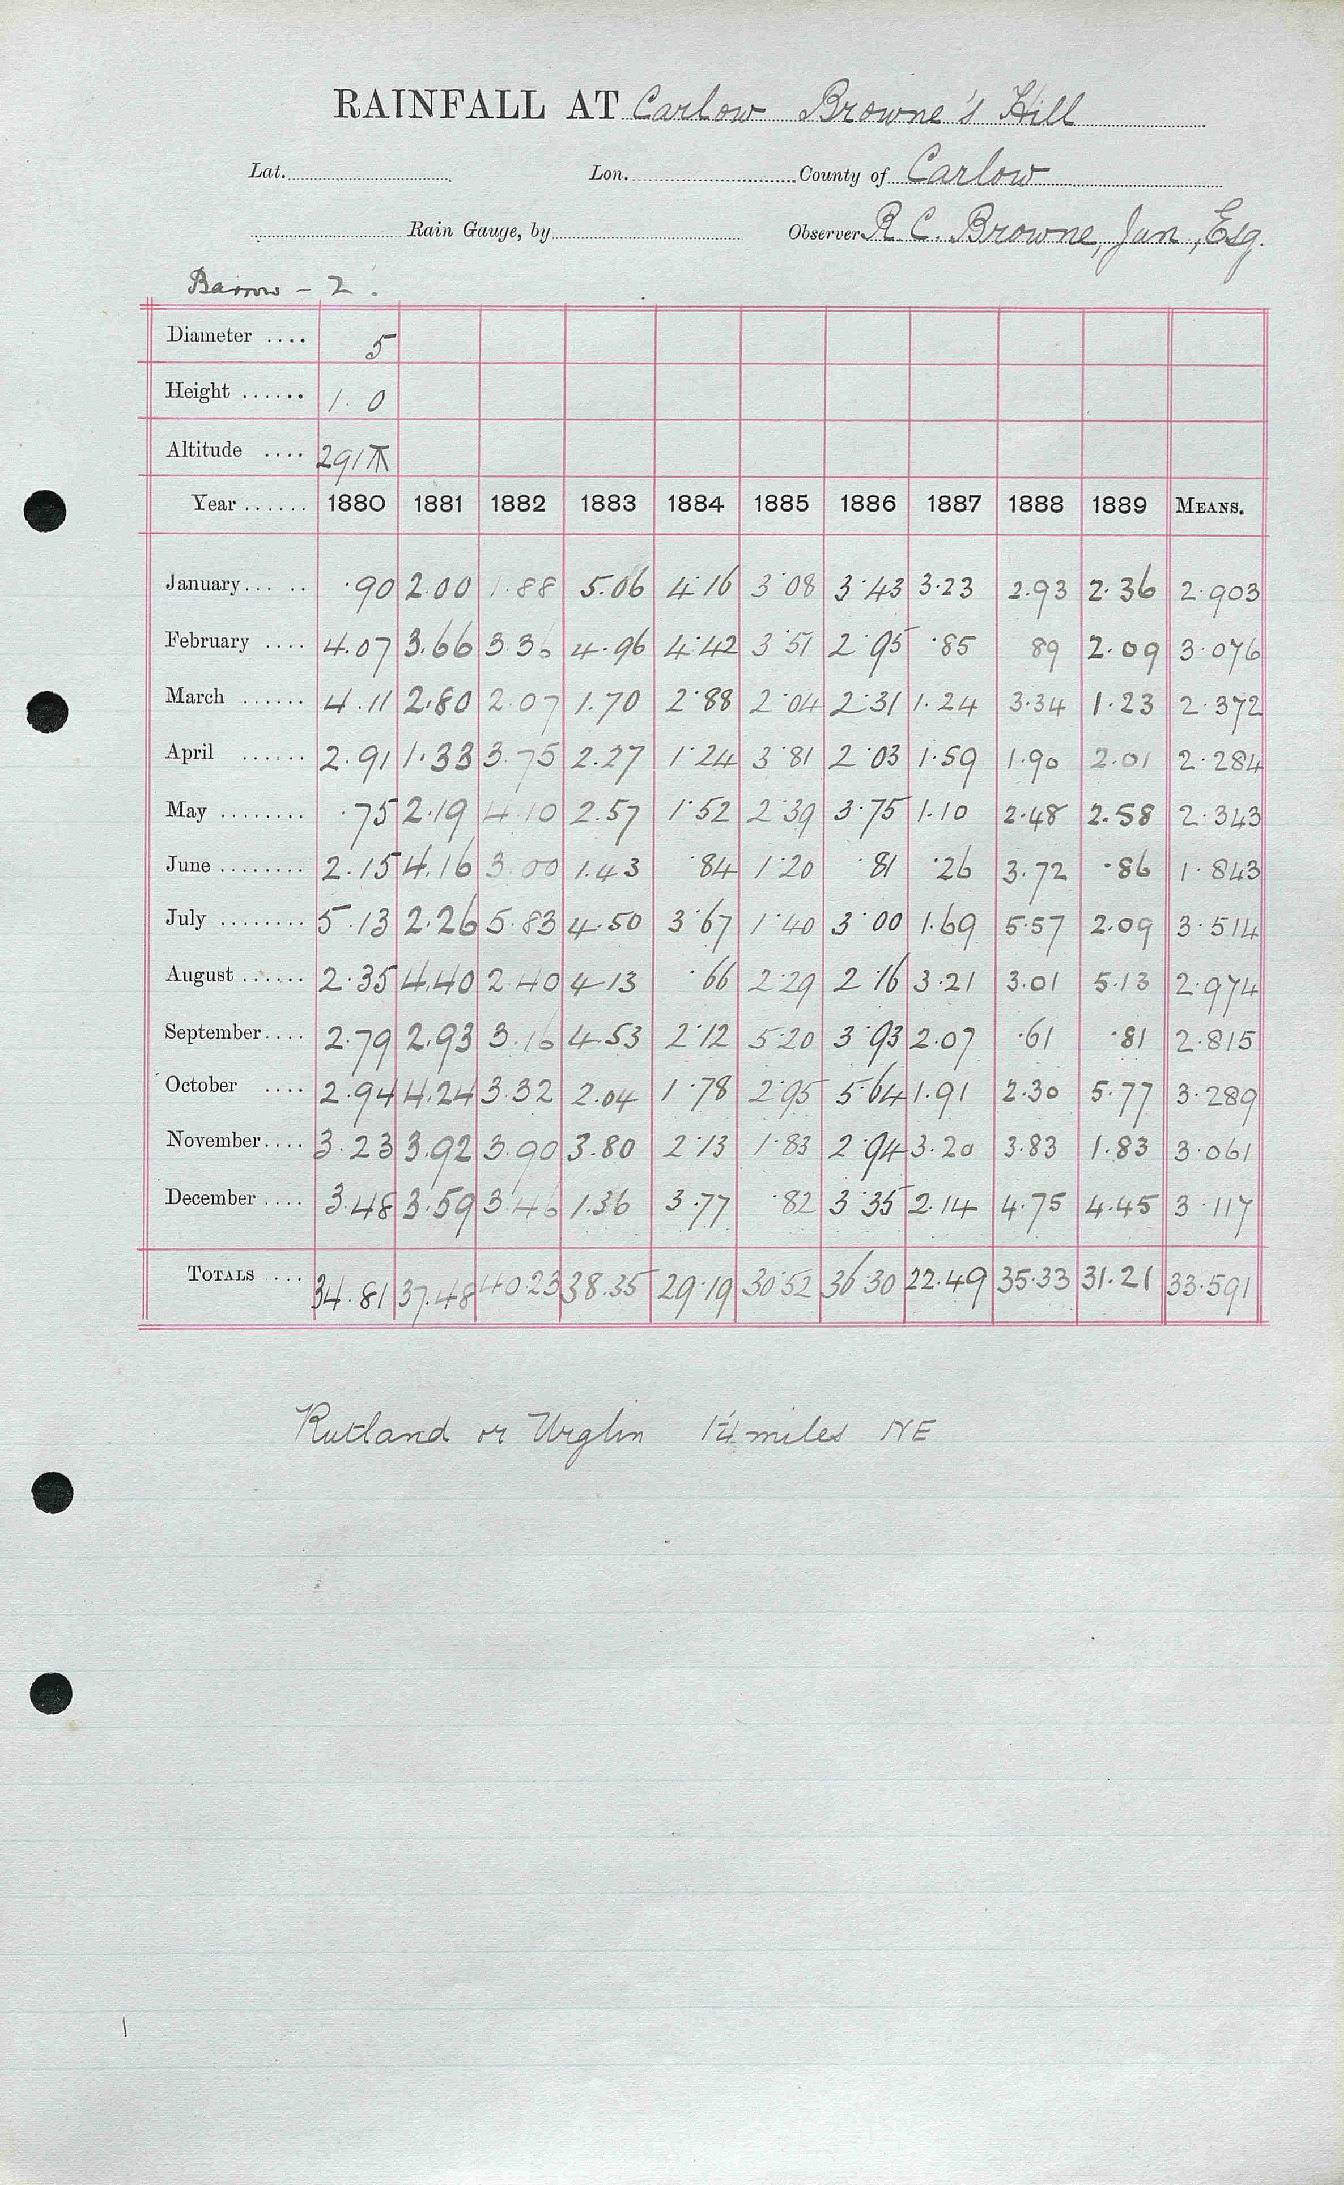 RAINFALL AT Carlow Browne's Hill
Lat. Lon. County of Carlow
Rain Gauge, by Observer R C. Browne, Jun, Esq.
Barrow - 2.
Diameter .... 5
Height ...... 1. 0
Altitude .... 291
Year ...... 1880 1881 1882 1883 1884 1885 1886 1887 1888 1889 MEANS.
January... .. .90 2.00 1.88 5.06 4.16 3.08 3.43 3.23 2.93 2.36 2.903
February .... 4.07 3.66 3.36 4.96 4.42 3.51 2.95 .85 89 2.09 3.076
March ...... 4.11 2.80 2.07 1.70 2.88 2.04 2.31 1.24 3.34 1.23 2.372
April ...... 2.91 1.33 3.75 2.27 1.24 3.81 2.03 1.59 1.90 2.01 2.284
May ........ .75 2.19 4.10 2.57 1.52 2.39 3.75 1.10 2.48 2.58 2.343
June ........ 2.15 4.16 3.00 1.43 .84 1.20 .81 .26 3.72 .86 1.843
July ........ 5.13 2.26 5.83 4.50 3.67 1.40 3.00 1.69 5.57 2.09 3.514
August ...... 2.35 4.40 2.40 4.13 .66 2.29 2.16 3.21 3.01 5.13 2.974
September.... 2.79 2.93 3.16 4.53 2.12 5.20 3.93 2.07 .61 .81 2.815
October .... 2.94 4.24 3.32 2.04 1.78 2.95 5.64 1.91 2.30 5.77 3.289
November.... 3.23 3.92 3.90 3.80 2.13 1.83 2.94 3.20 3.83 1.83 3.061
December .... 3.48 3.59 3.46 1.36 3.77 .82 3.35 2.14 4.75 4.45 3.117
TOTALS ... 34.81 37.48 40.23 38.35 29.19 30.52 36.30 22.49 35.33 31.21 33.591
Rutland or Urglin 1¼ miles NE